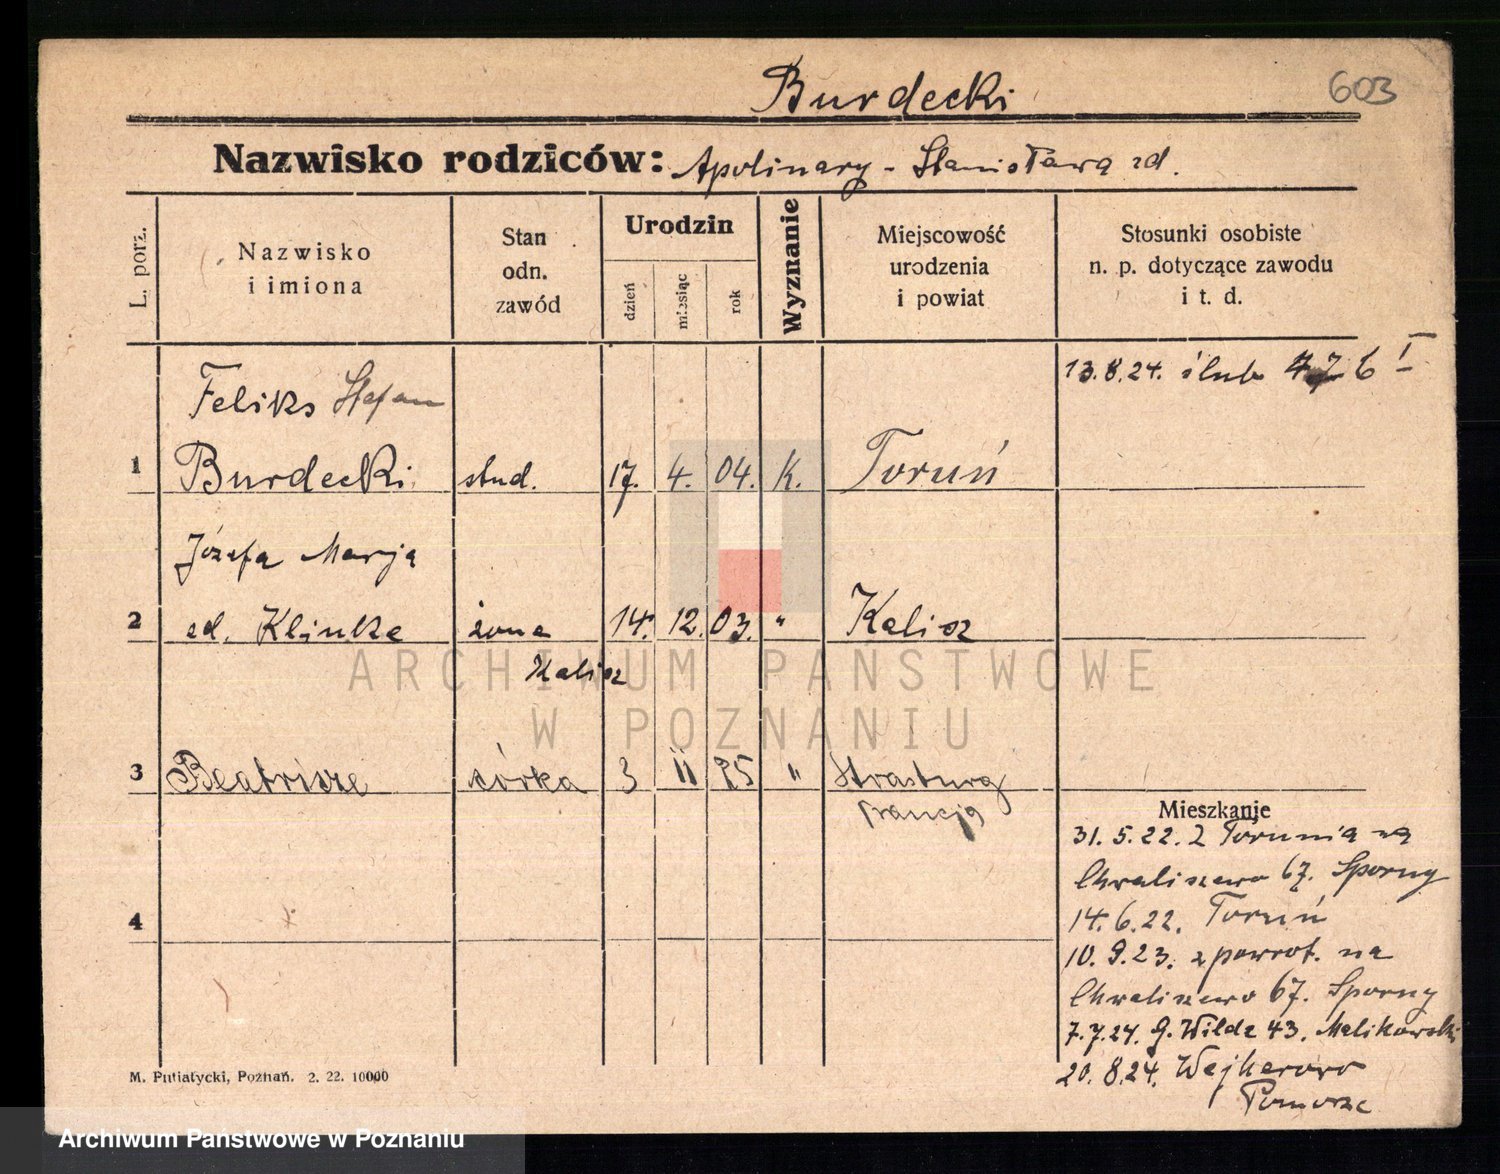 Burdecki 603
Nazwisko rodziców: Apolinary - Stanisława zd.
L. porz.
Nazwisko
i imiona
Stan
odn.
zawód
Urodzin
dzień
miesiąc
rok
Wyznanie
Miejscowość
urodzenia
i powiat
Stosunki osobiste
n. p. dotyczące zawodu
i t. d.
13.8.24. ślub
Feliks Stefan
1 Burdecki stud. 17. 4. 04. K. Toruń
Józefa Marja
2 zd. Klinke żona 14. 12. 03. " Kalisz
Kalisz
ARCHIWUM PAŃSTWOWE
W POZNANIU
3 Beatrice córka 3 II 25 " Strasburg
Francja
Mieszkanie
31. 5. 22. Z Torunia na
Chwaliszewo 67. Sporny
4
14. 6. 22. Toruń
10. 9. 23. z powrot. na
Chwaliszewo 67. Sporny
7.7.24. G. Wilda 43. Malikowski
20. 8. 24. Wejherowo
Pomorze
M. Putiatycki, Poznań. 2. 22. 10000
Archiwum Państwowe w Poznaniu